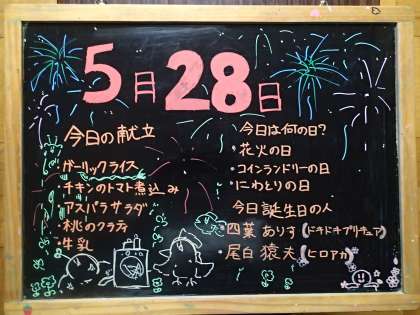 5月28日
今日の献立
・ガーリックライス
・チキンのトマト煮込み
・アスパラサラダ
・桃のクラフティ
・牛乳
今日は何の日?
・花火の日
・コインランドリーの日
・にわとりの日
今日誕生日の人
・四葉 ありす(ドキドキプリキュア)
・尾白 猿夫(ヒロアカ)